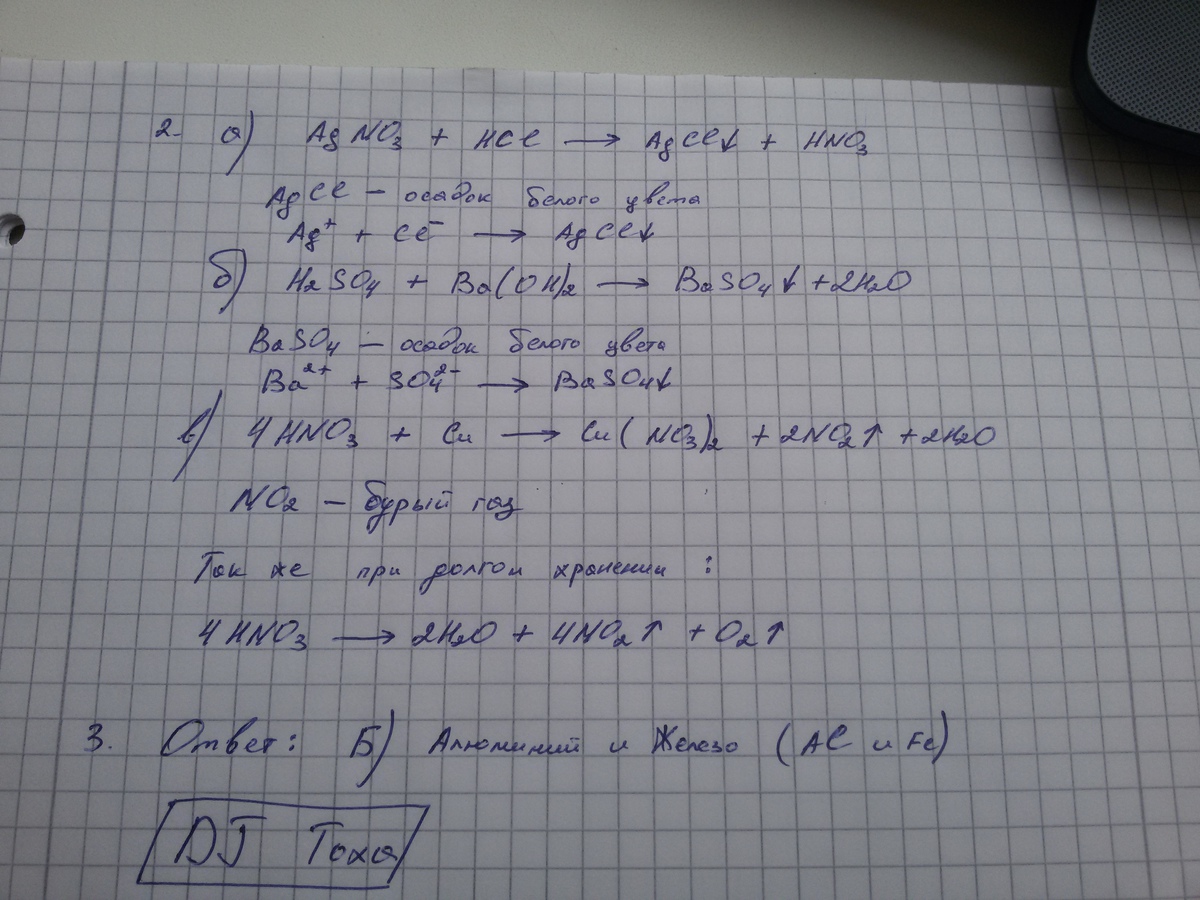 2. а) AgNO₃ + HCl → AgCl↓ + HNO₃
AgCl – осадок белого цвета
Ag⁺ + Cl⁻ → AgCl↓
б) H₂SO₄ + Ba(OH)₂ → BaSO₄↓ + 2H₂O
BaSO₄ – осадок белого цвета
Ba²⁺ + SO₄²⁻ → BaSO₄↓
в) 4HNO₃ + Cu → Cu(NO₃)₂ + 2NO₂↑ + 2H₂O
NO₂ – бурый газ
Так же при долгом хранении :
4HNO₃ → 2H₂O + 4NO₂↑ + O₂↑
3. Ответ: Б) Алюминий и Железо (Al и Fe)
DJ Тоха